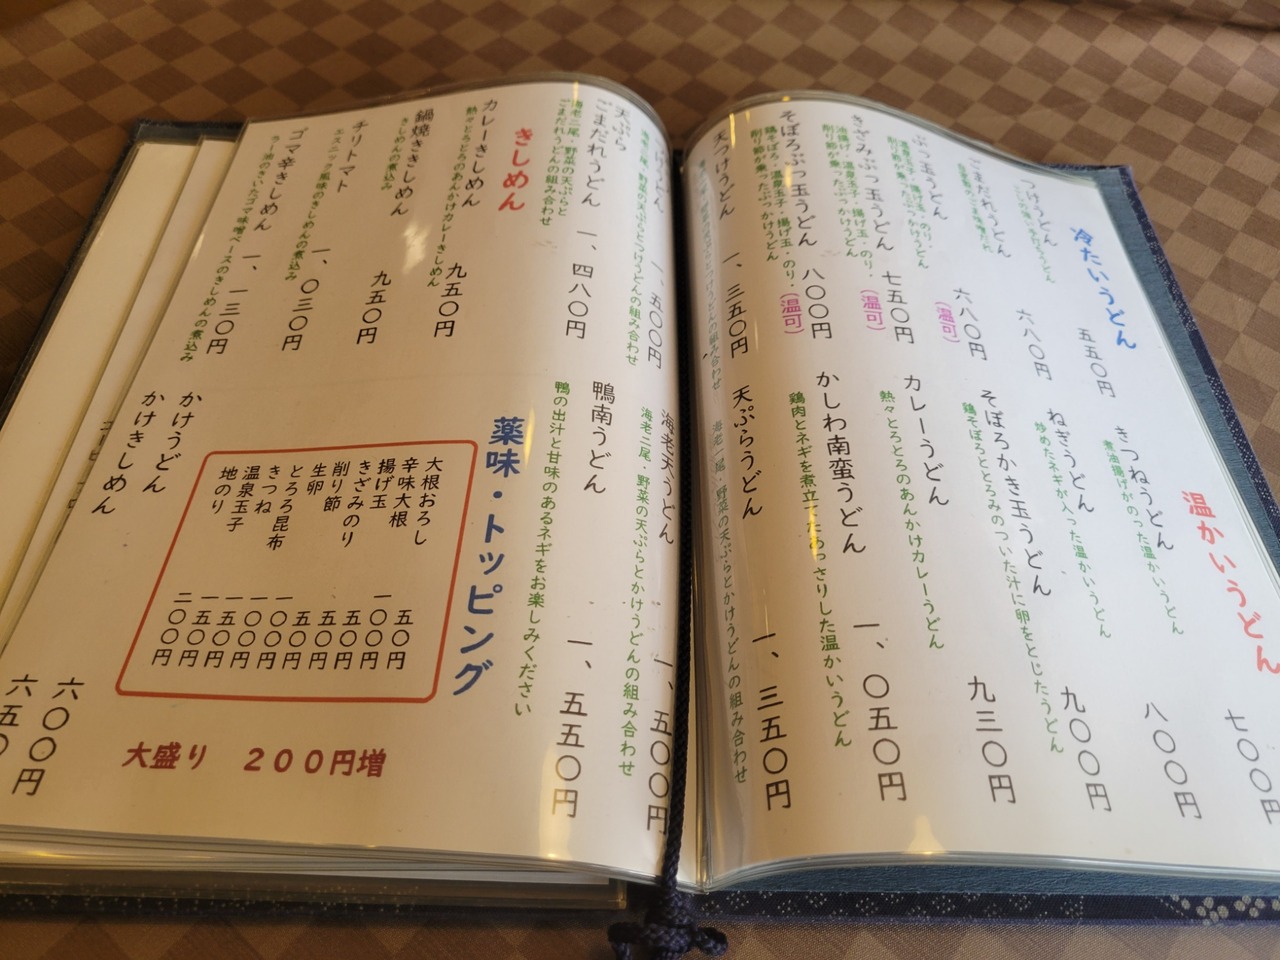 冷たいうどん
つけうどん
五五〇円
ごまだれうどん
六八〇円
ぶっ玉うどん
六八〇円
(温可)
きざみぶっ玉うどん
油揚げ・温泉玉子・揚げ玉・のり・
削り節が乗ったぶっかけうどん
七五〇円
(温可)
そぼろぶっ玉うどん
鶏そぼろ・温泉玉子・揚げ玉・のり・
削り節が乗ったぶっかけうどん
八〇〇円
(温可)
天つけうどん
一、三五〇円
温かいうどん
七〇〇円
きつねうどん
煮油揚げがのった温かいうどん
八〇〇円
ねぎうどん
炒めたネギが入った温かいうどん
九〇〇円
そぼろかき玉うどん
鶏そぼろととろみのついた汁に卵をとじたうどん
九三〇円
カレーうどん
熱々とろとろのあんかけカレーうどん
かしわ南蛮うどん
鶏肉とネギを煮立てたあっさりした温かいうどん
一、〇五〇円
天ぷらうどん
海老一尾・野菜の天ぷらとかけうどんの組み合わせ
一、三五〇円
海老二尾・野菜の天ぷらとつけうどんの組み合わせ
一、五〇〇円
天ぷら
ごまだれうどん
海老二尾・野菜の天ぷらと
ごまだれうどんの組み合わせ
一、四八〇円
きしめん
カレーきしめん
熱々とろとろのあんかけカレーきしめん
九五〇円
鍋焼ききしめん
きしめんの煮込み
九五〇円
チリトマト
エスニック風味のきしめんの煮込み
一、〇三〇円
ゴマ辛きしめん
ラー油のきいたゴマ味噌ベースのきしめんの煮込み
一、一三〇円
海老天うどん
海老二尾・野菜の天ぷらとかけうどんの組み合わせ
一、五〇〇円
鴨南うどん
鴨の出汁と甘味のあるネギをお楽しみください
一、五五〇円
薬味・トッピング
大根おろし 五〇円
辛味大根 一〇〇円
揚げ玉 五〇円
きざみのり 五〇円
削り節 五〇円
生卵 五〇円
とろろ昆布 一〇〇円
きつね 一〇〇円
温泉玉子 一五〇円
地のり 二〇〇円
大盛り 200円増
かけうどん
六〇〇円
かけきしめん
六五〇